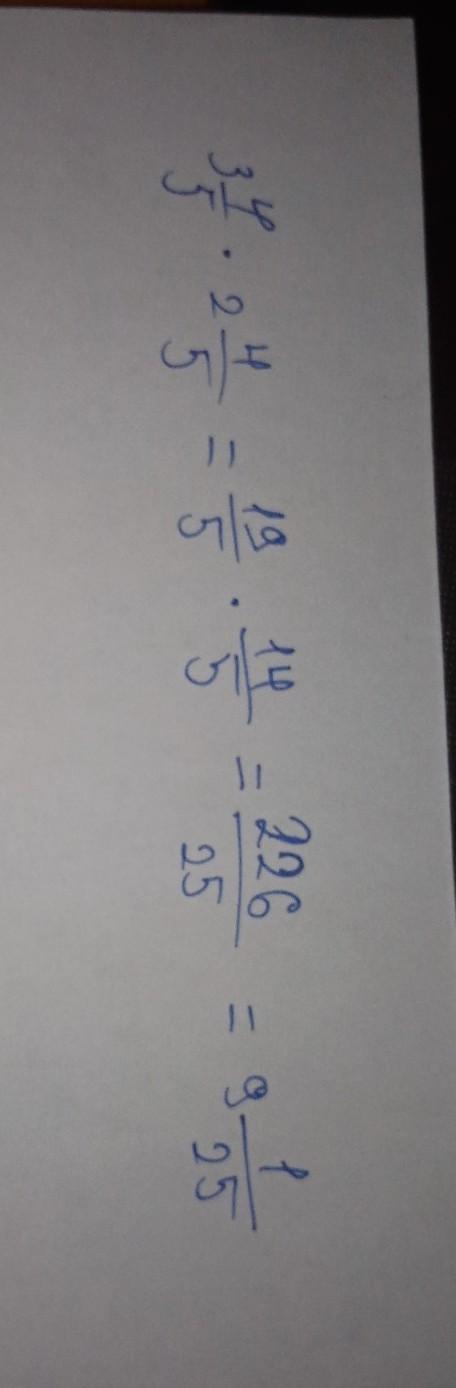 3 4/5 · 2 4/5 = 19/5 · 14/5 = 226/25 = 9 1/25